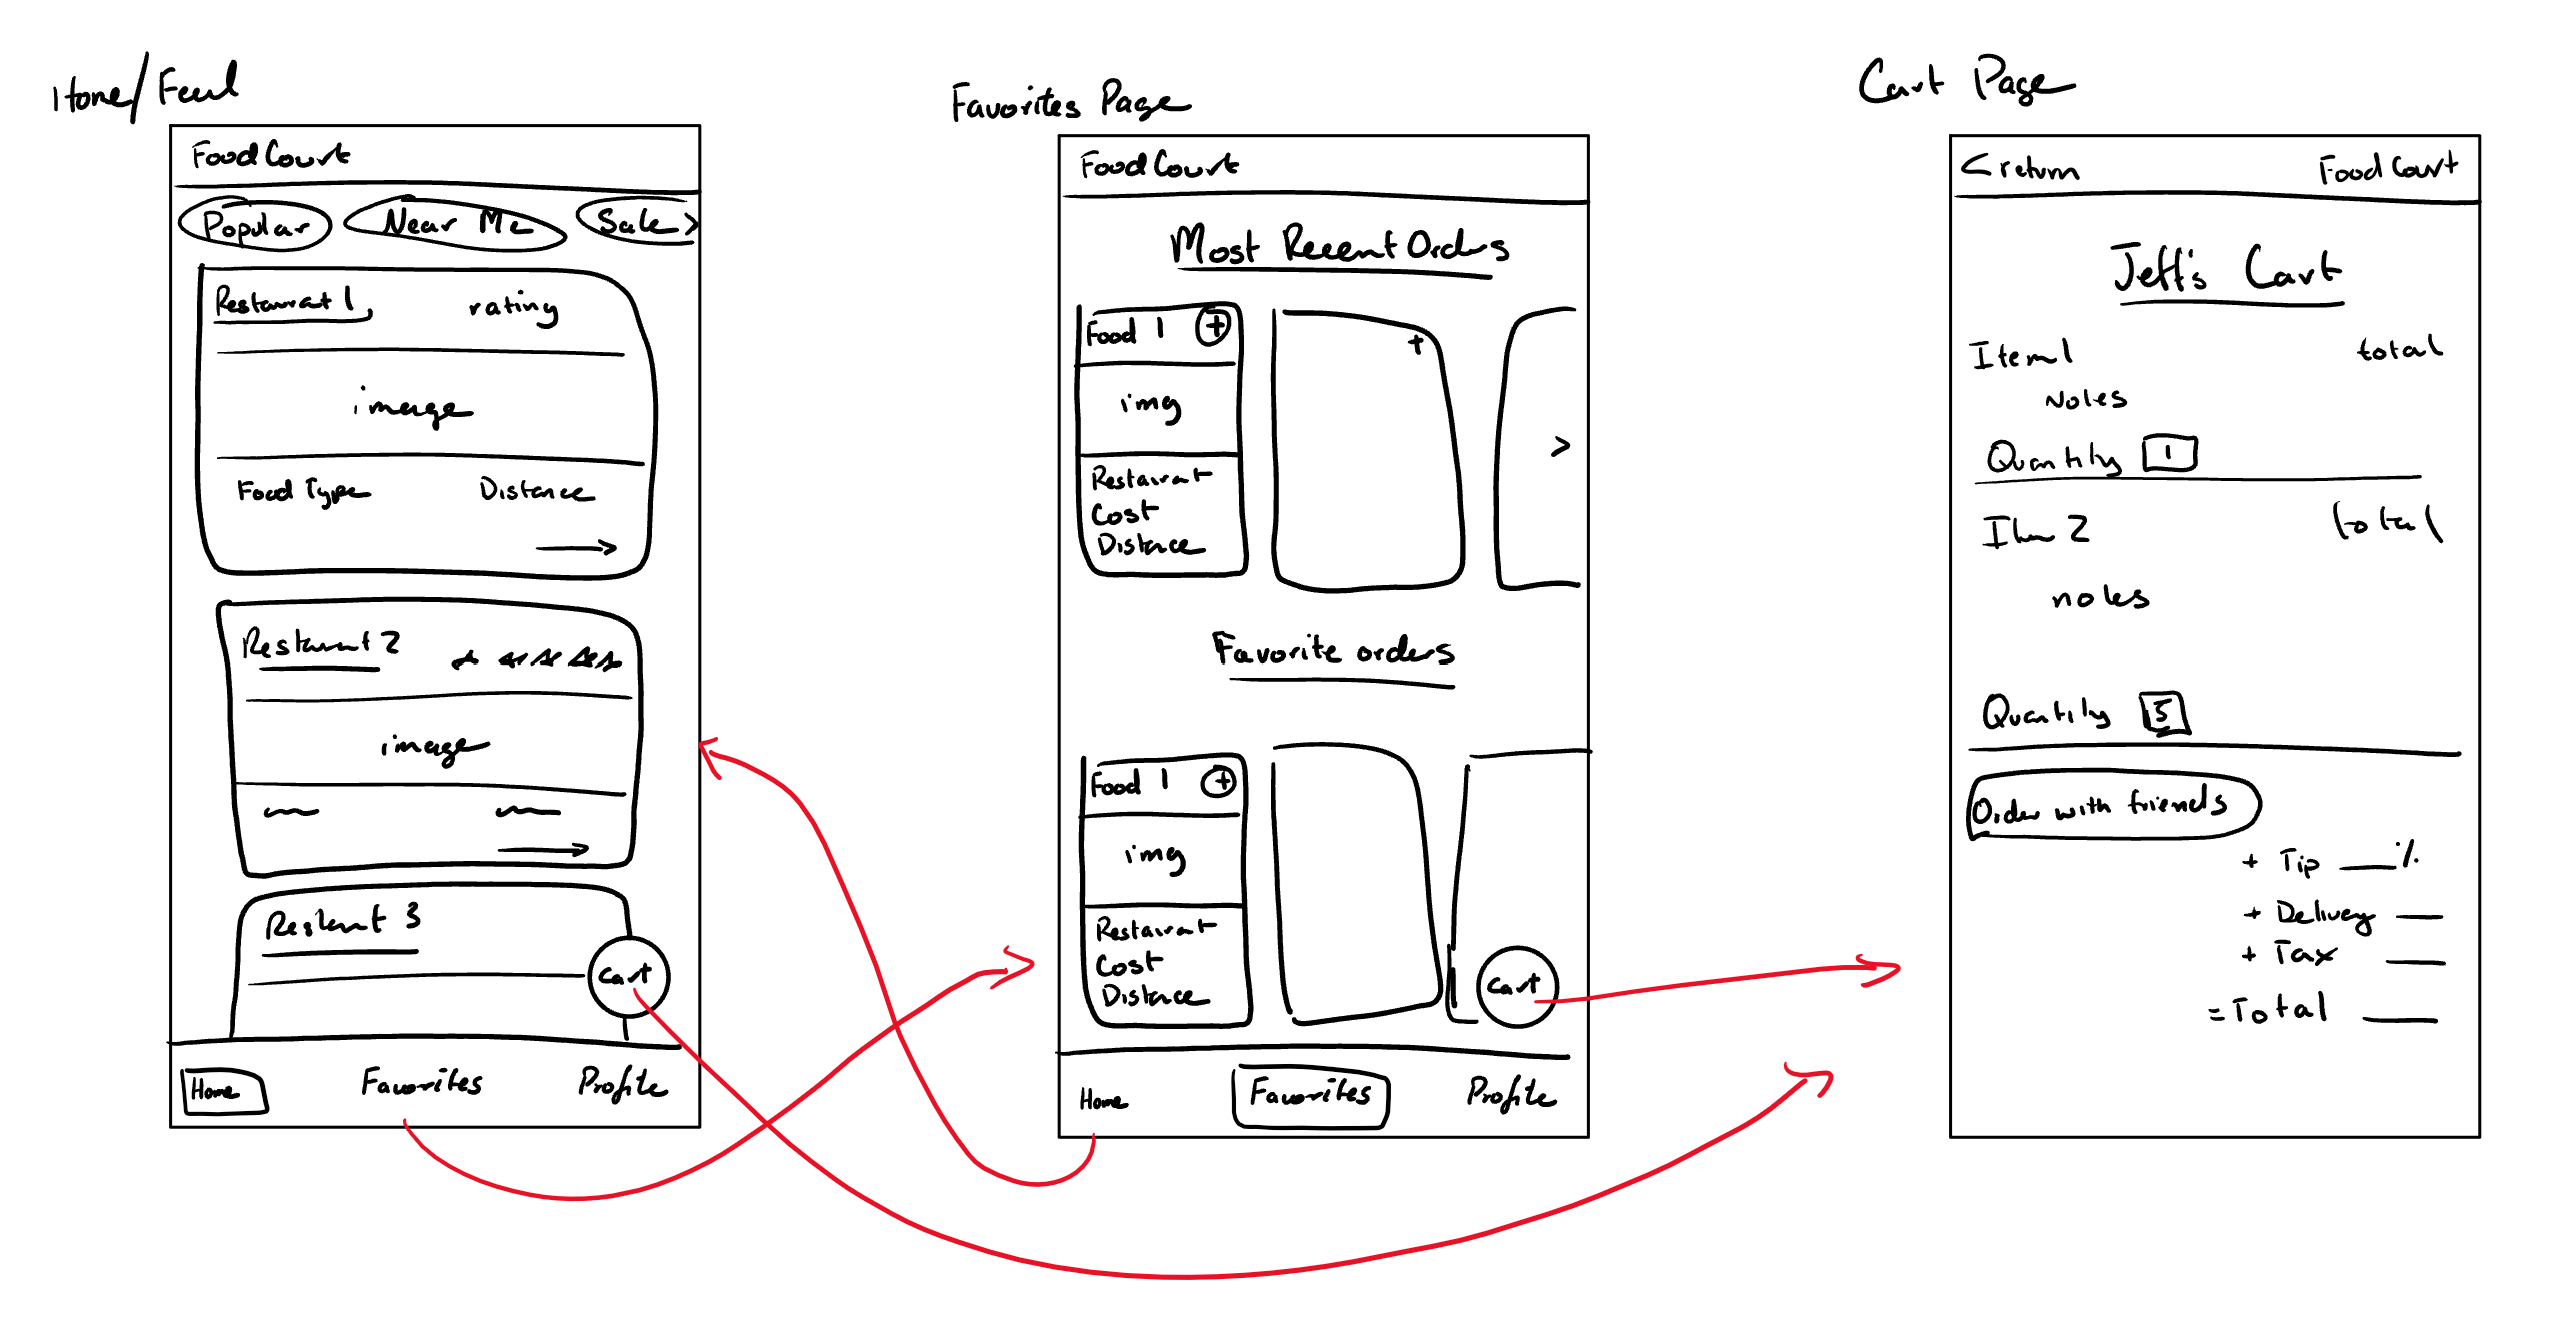 Home/Feed
FoodCourt
Popular Near Me Sale >
Restaurant 1 rating
image
Food Type Distance
Restaurant 2
image
Restaurant 3
Cart
Home Favorites Profile
Favorites Page
FoodCourt
Most Recent Orders
Food 1 + +
img
>
Restaurant
Cost
Distance
Favorite orders
Food 1 +
img
Restaurant
Cost
Distance
Cart
Home Favorites Profile
Cart Page
< return FoodCourt
Jeff's Cart
Item 1 total
Notes
Quantity 1
Item 2 total
notes
Quantity 5
Order with friends
+ Tip ___%
+ Delivery ___
+ Tax ___
= Total ___